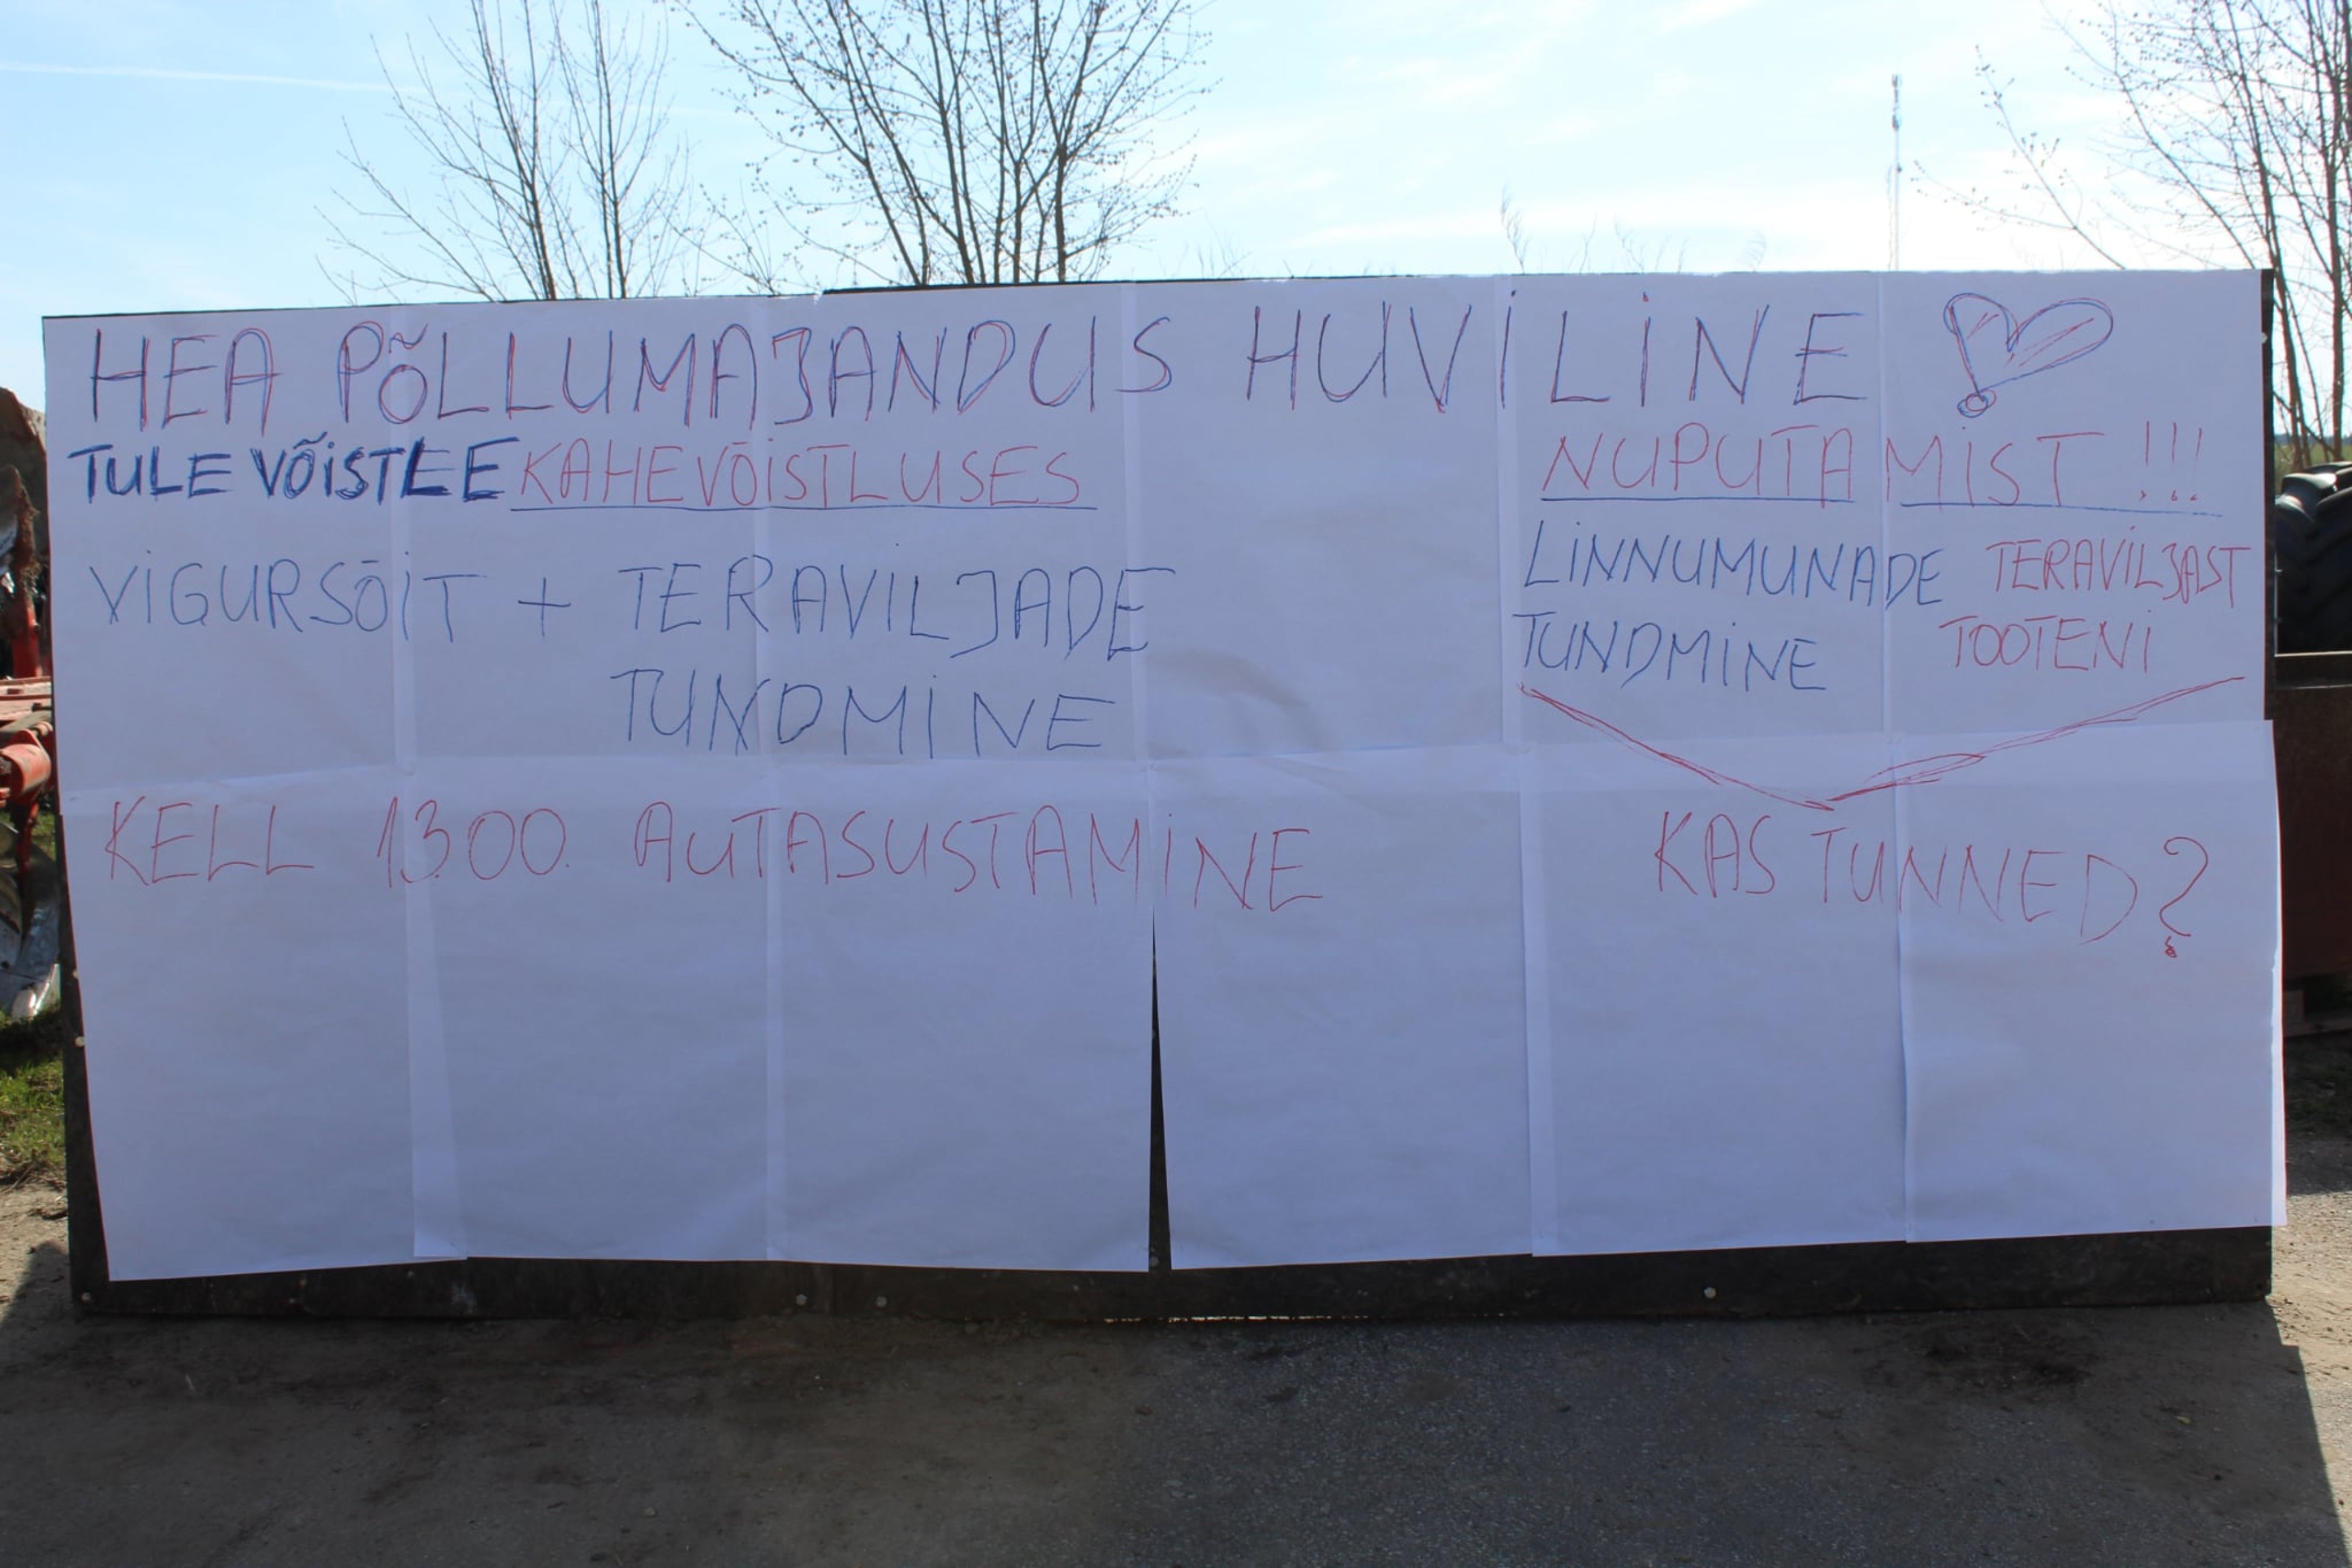 HEA PÕLLUMAJANDUS HUVILINE
TULE VÕISTLE KAHEVÕISTLUSES
VIGURSÕIT + TERAVILJADE
TUNDMINE
KELL 13.00. AUTASUSTAMINE
NUPUTAMIST !!!
LINNUMUNADE TERAVILJAST
TUNDMINE TOOTENI
KAS TUNNED?